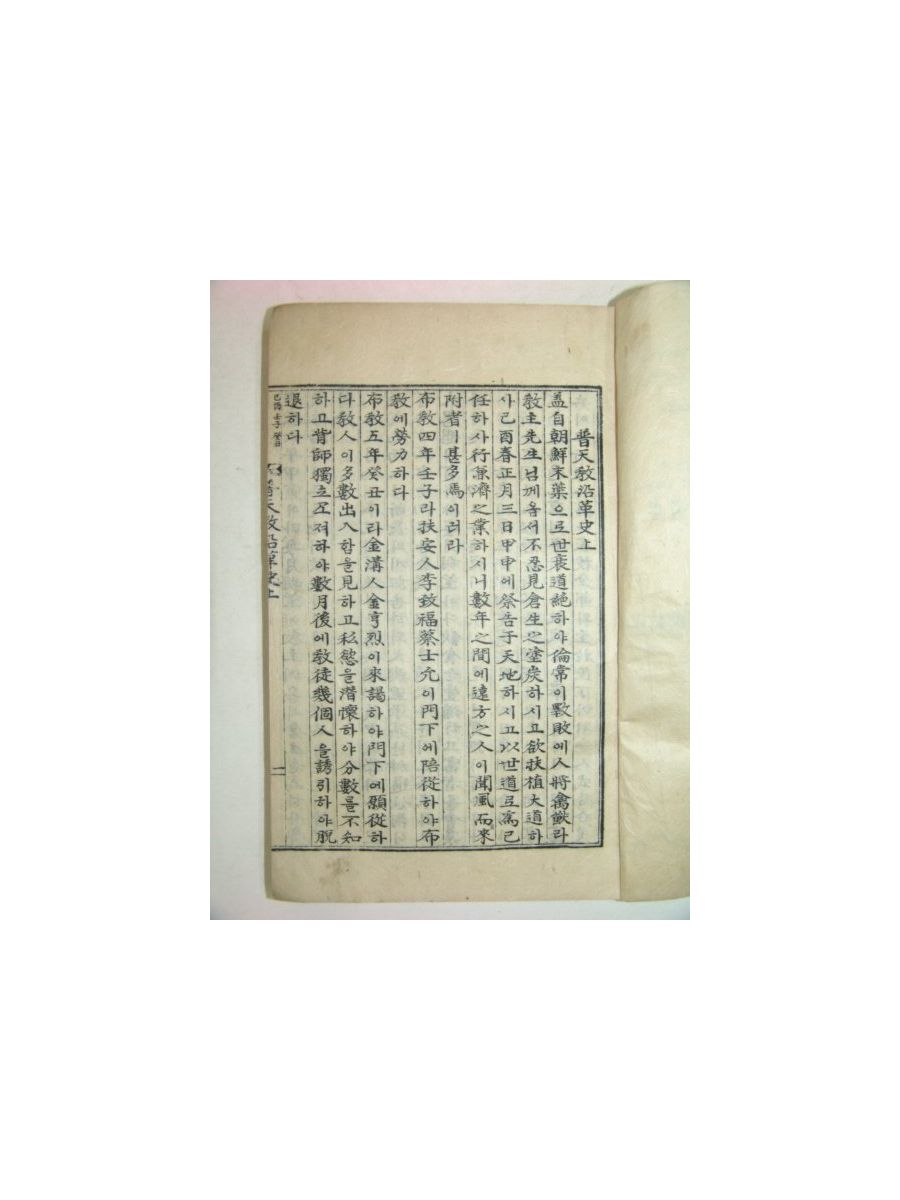 普天教沿革史上
盖自朝鮮末葉으로世衰道絶하야倫常이斁敗에人將禽獸라
教主先生님게옵서不忍見倉生之塗炭하시고欲扶植大道하
사己酉春正月三日甲申에祭告于天地하시고以世道로爲己
任하사行兼濟之業하시니數年之間에遠方之人이聞風而來
附者ㅣ甚多焉이러라
布教四年壬子라扶安人李致福蔡士允이門下에陪從하야布
教에勞力하다
布教五年癸丑이라金溝人金亨烈이來謁하야門下에願從하
다教人이多數出入함을見하고私慾을潛懷하야分數를不知
하고背師獨立코져하야數月後에教徒幾個人을誘引하야脫
退하다
己酉 壬子 癸丑
普天教沿革史上
一